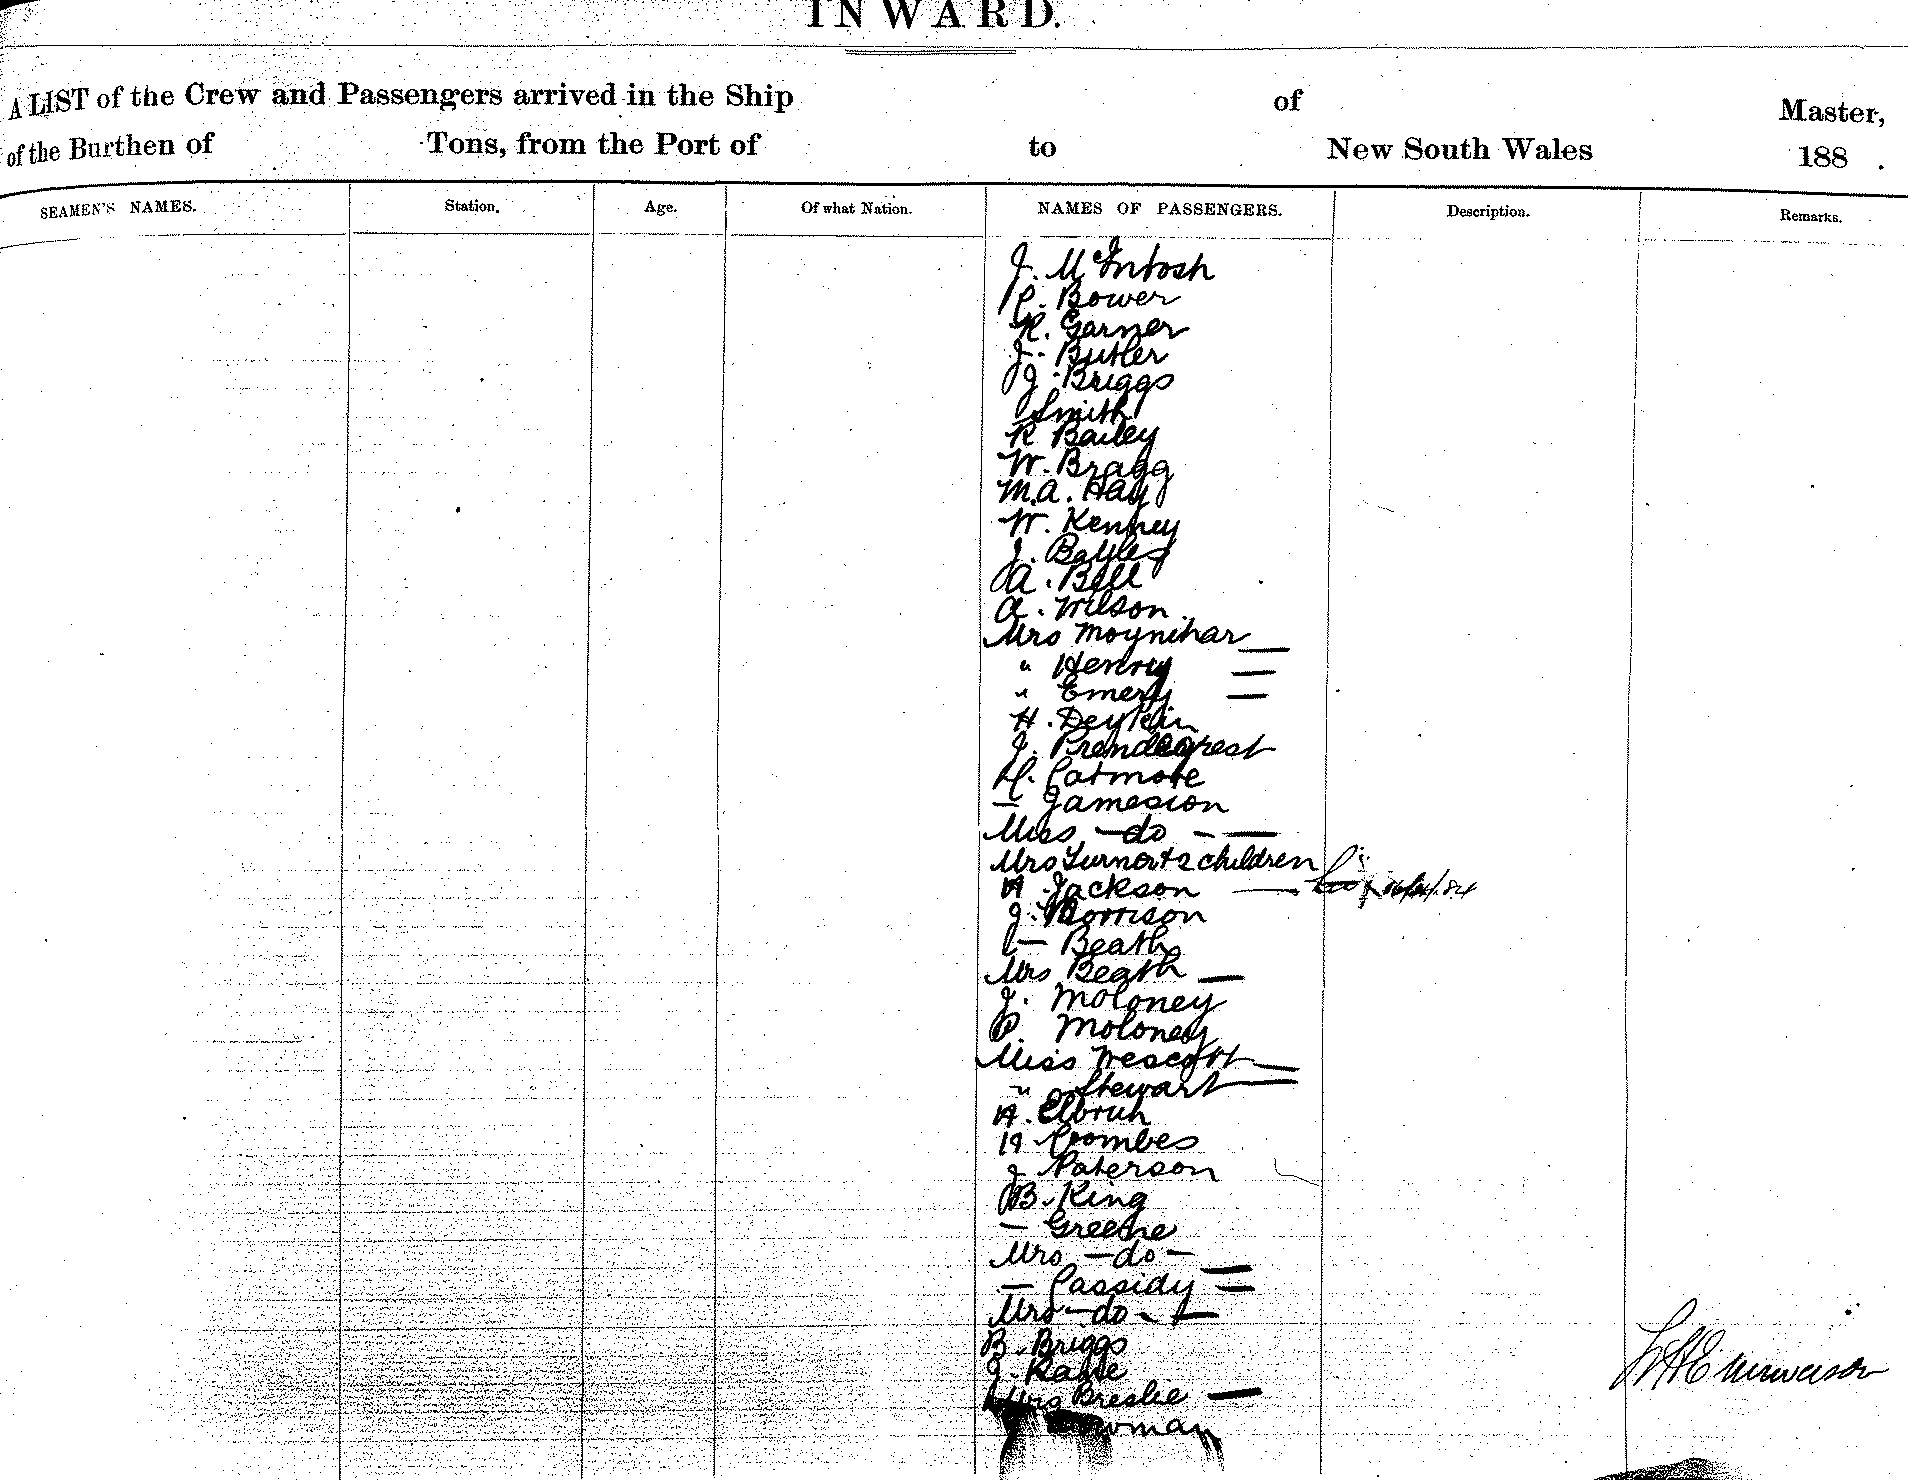 INWARD.
A LIST of the Crew and Passengers arrived in the Ship of Master,
of the Burthen of Tons, from the Port of to New South Wales 188 .
SEAMEN'S NAMES. Station. Age. Of what Nation. NAMES OF PASSENGERS. Description. Remarks.
J. McIntosh
C. Bower
R. Garner
J. Butler
J. Briggs
Smith
R Bailey
W. Bragg
M.A. Hay
W. Kenney
J. Bayles
A. Bell
A. Wilson
Mrs Moynihan —
" Henry —
" Emery —
H. Deyklin
J. Prendegrest
H. Catmore
— Jameson
Miss — do — —
Mrs Turner + 2 children
H. Jackson —
J. Morrison
— Beath
Mrs Beath —
J. Moloney
P. Moloney
Miss Wescott —
" Stewart —
H. Elbruh
H Coombes
J Paterson
B. King
— Greene
Mrs — do —
— Cassidy —
Mrs — do — —
B. Briggs
J. Kable
Mrs Breslie —